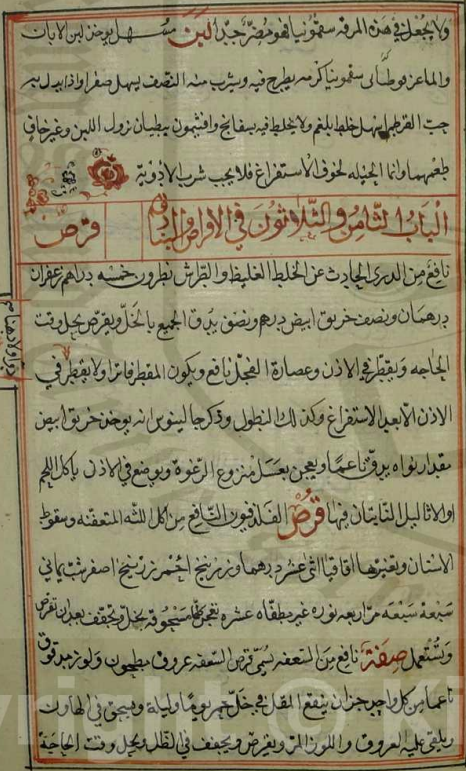 ولا يجعل في هذه المرقه سقمونيا فهو مضر جدا لبن مسهل يوخذ لبن الاتان
والماعز فوطا الى سقمونيا كرمه يطرح فيه ويشرب منه النصف يسهل صفرا واذا بدل
حب القرطم اسهل خلط بلغم ولا يخلط فيه بسفايج وافتيمون يبطيان نزول اللبن وغير خاف
طعمهما وانما الحيله لخوف الاستفراغ فلا يجب شرب الادوية
الباب الثامن والثلاثون في الاقراص قرص
نافع من الدوي الحادث عن الخلط الغليظ والقراش نطرون خمسه دراهم زعفران
درهمان ونصف خربق ابيض درهم ونصف يدق الجميع بالخل ويقرص يحل وقت
الحاجه ويقطر في الاذن وعصارة الفجل نافع ويكون المقطر فاترا ولا يقطر في
الاذن الا بعد الاستفراغ وكذلك النطول وذكر جالينوس انه يوخذ خربق ابيض
مقدار نواه يدق ناعما ويعجن بعسل منزوع الرغوة ويوضع في الاذن ياكل اللحم
او الاثاليل النابتان فيها قرص الفلدفيون النافع من اكل اللثه المتعفنه وسقوط
الاسنان وتغيرها اقاقيا اثنى عشر درهما وزرنيخ احمر زرنيخ اصفر شب يماني
سبعه سبعه مر اربعه نوره غير مطفاه عشره يعجن كلها مسحوقه بخل وتجفف بعد ان تقرص
وتستعمل صفة نافع من السعفه يسمى قرص السعفه عروق مطحون ولوز مر مدقوق
ناعما من كل واحد جزان ينقع المقل في خل خمر يوما وليلة ويسحق في الهاون
ويلقى عليه العروق واللوز المر ويقرص ويجفف في الظل ويحل وقت الحاجة